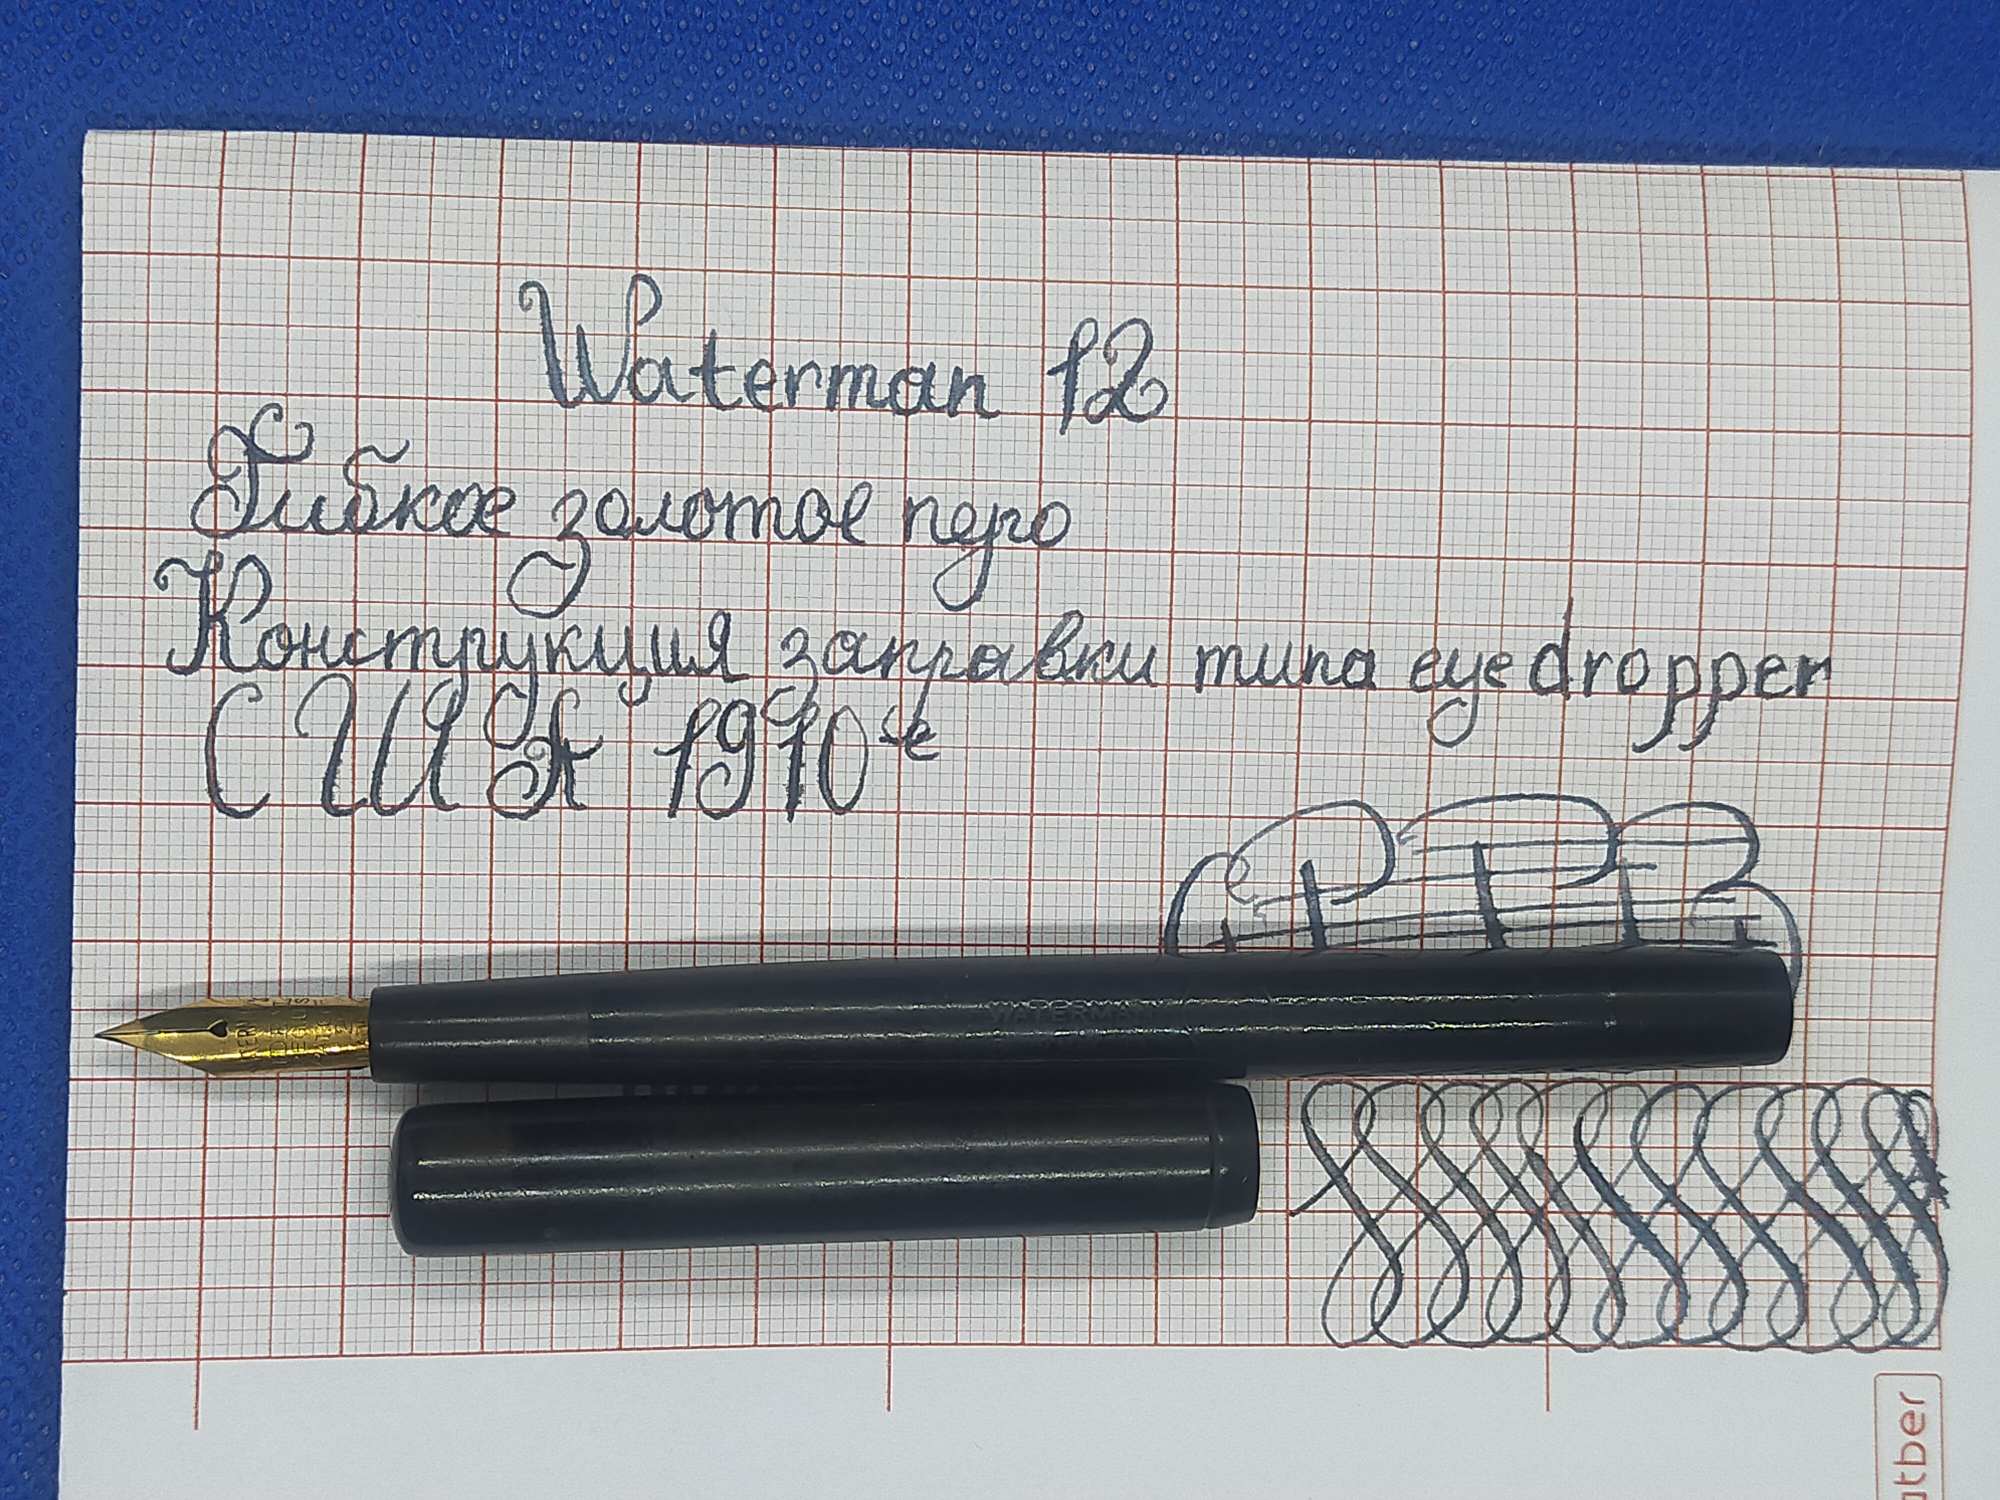 Waterman 12
Гибкое золотое перо
Конструкция заправки типа eyedropper
США 1910-е
WATERMAN